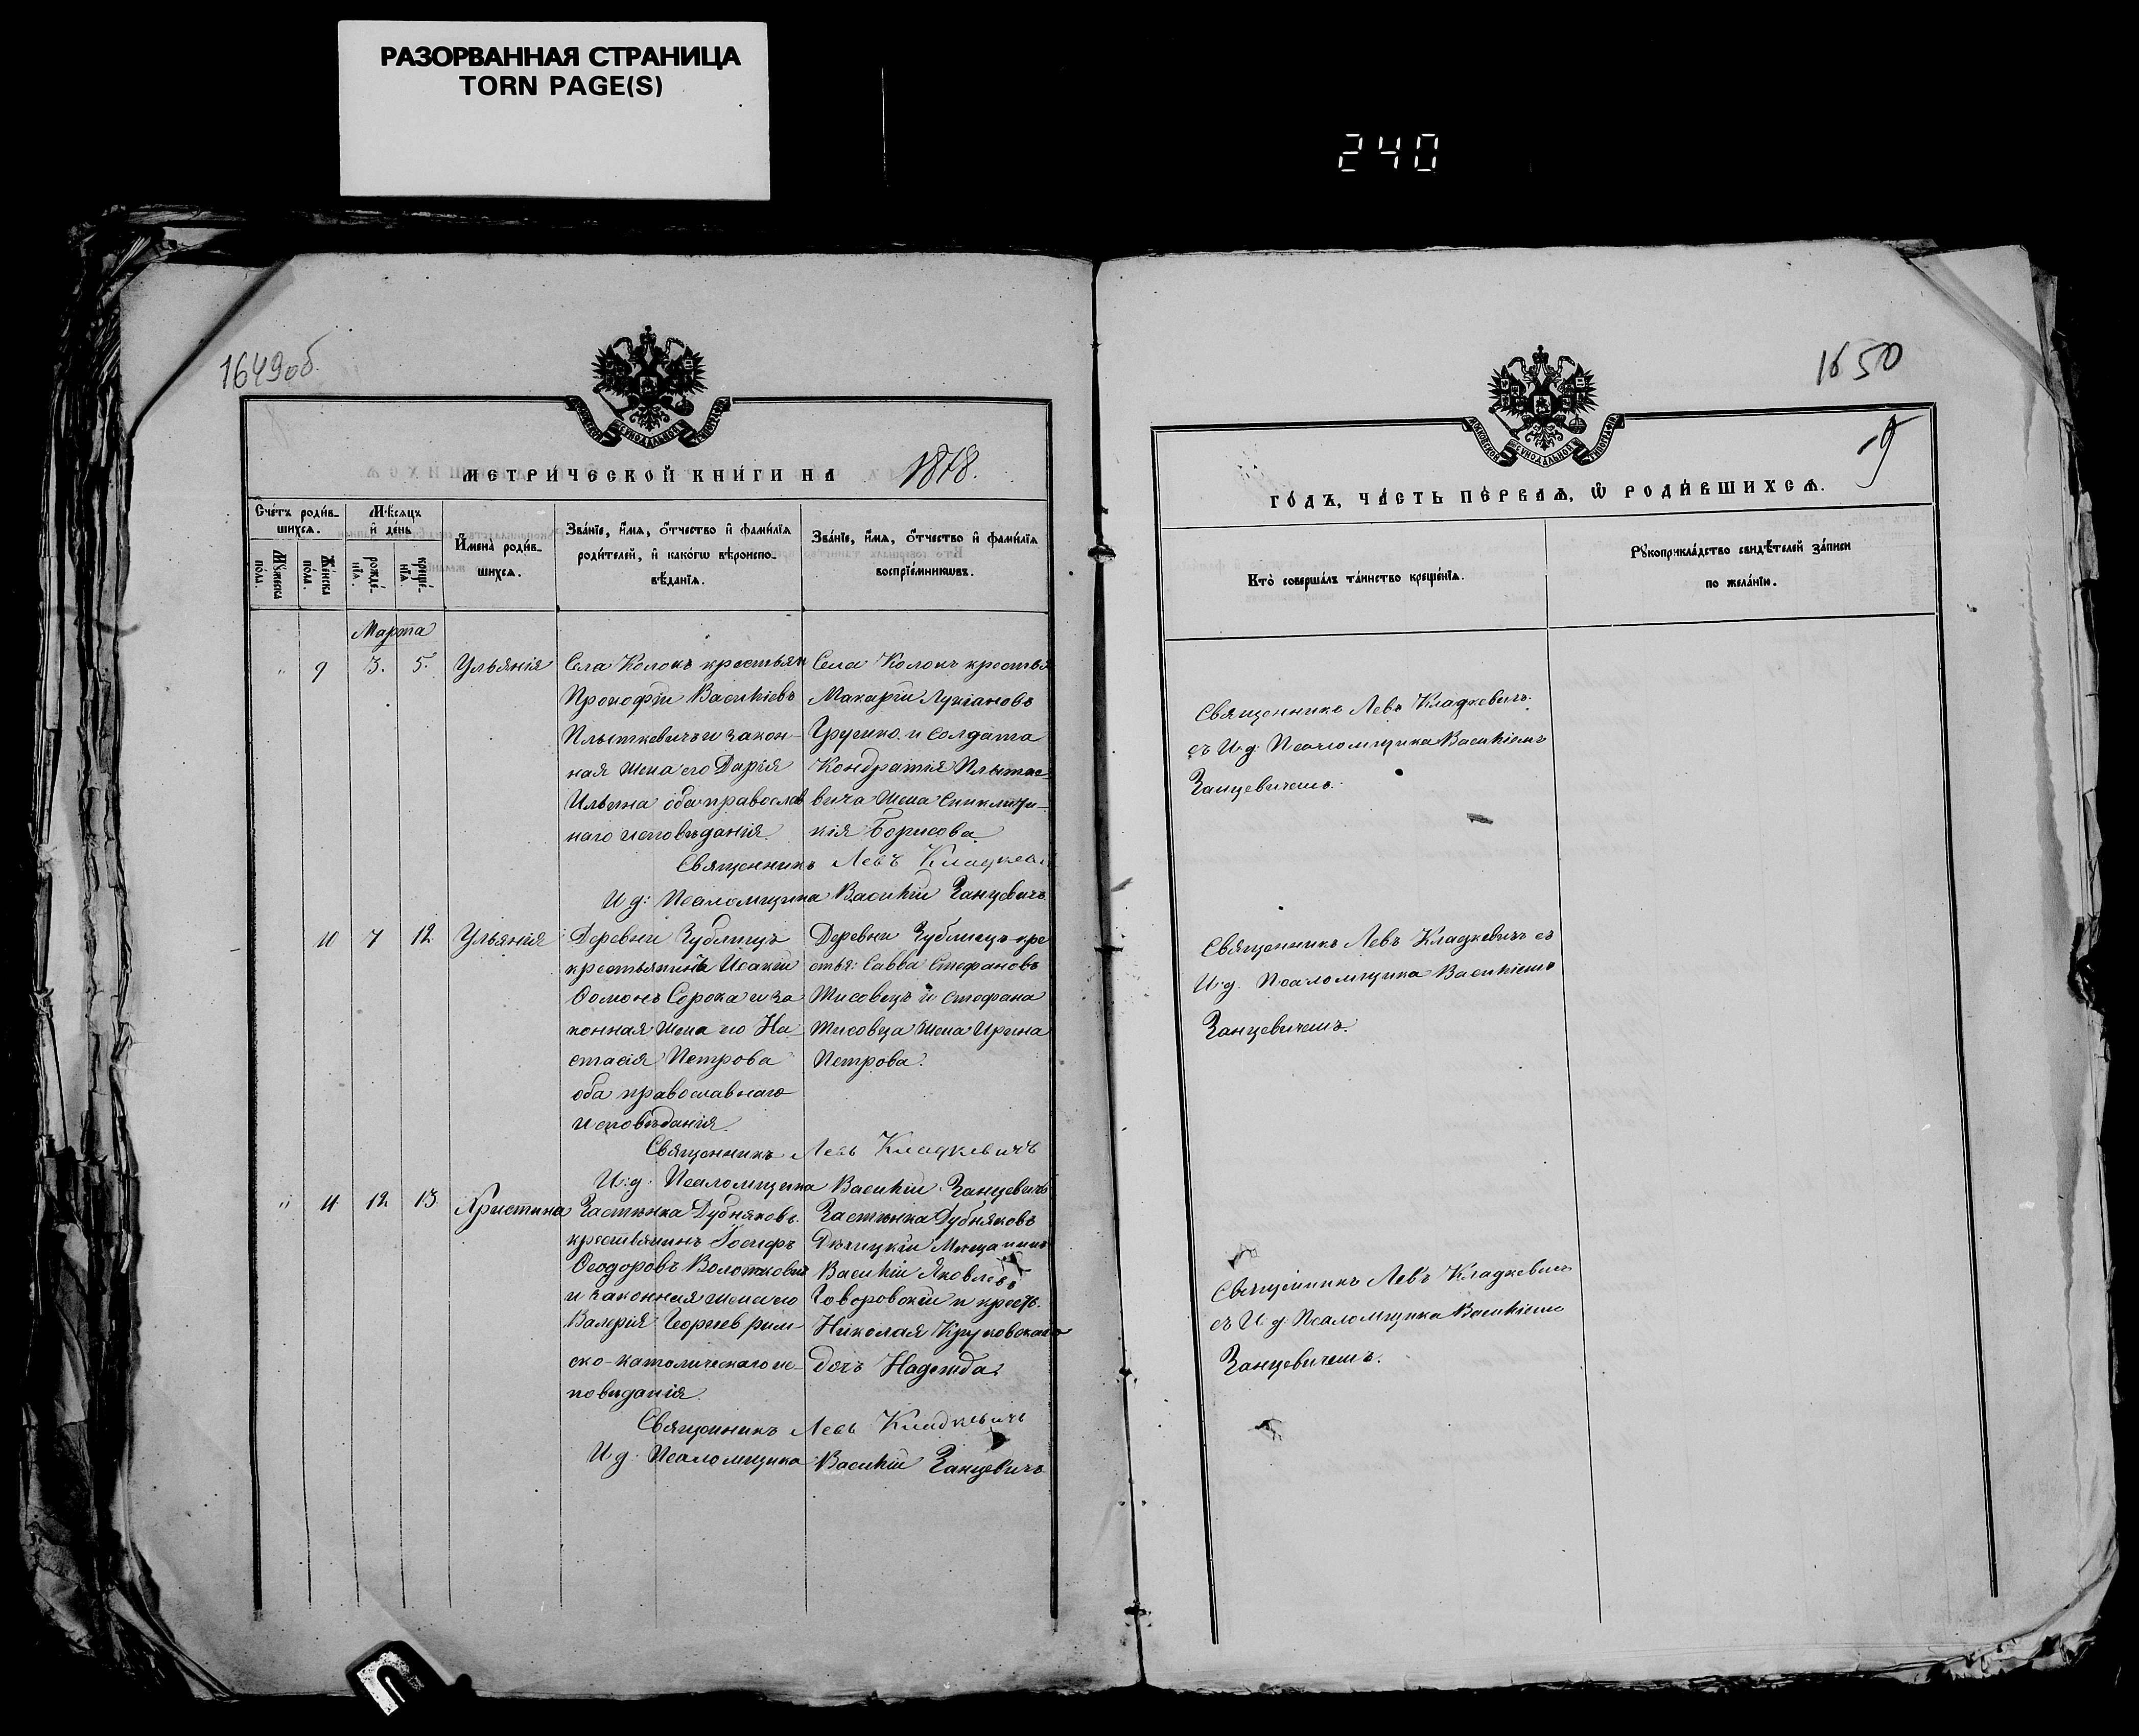 РАЗОРВАННАЯ СТРАНИЦА
TORN PAGE(S)
240
1649об.
МЕТРИ́ЧЕСКОЙ КНИ́ГИ НА 1878.
Сче́тъ роди́в-
шихсѧ.
Мѣ́сяцъ
и҆ де́нь
Мꙋ́жеска
по́ла.
Же́нска
по́ла.
рожде́-
нїѧ.
креще́-
нїѧ.
И҆мена̀ роди́в-
шихсѧ.
Зва́нїе, и҆́мѧ, ѻ҆́тчество и҆ фами́лїѧ
роди́телей, и҆ како́гѡ вѣроиспо-
вѣ́данїѧ.
Зва́нїе, и҆́мѧ, ѻ҆́тчество и҆ фами́лїѧ
воспрїе́мникѡвъ.
Марта
" 9 3. 5. Ульянія
Села Колокъ крестьян
Прокофій Василіевъ
и закон-
ная жена его Дарія
Ильина оба православ
наго исповѣданія.
Села Колокъ крестья
Макарій Лукіановъ
и солдата
Кондратія
вича жена
кія Борисова
Священникъ Левъ Кладкевичъ
И.д: Псаломщика Василій Занцевичъ
10 7 12 Ульянія
Деревни Зублищъ
крестьянинъ Исакій
Сорока и за
конная жена его На
стасія Петрова
оба православнаго
исповѣданія.
Деревни Зублищъ кре
стья: Савва Стефановъ
Тисовецъ и Стефана
Тисовца жена Ирина
Петрова.
Священникъ Левъ Кладкевичъ
И:д: Псаломщика Василій Занцевичъ
" 11 12 13 Христина
Застѣнка Дубняковъ.
крестьянинъ Іосифъ
Ѳеодоровъ Волотковичъ
и законная жена его
Валерія Георгіев рим-
ско-католическаго ис-
повѣданія.
Застѣнка Дубняковъ
Мѣщанинъ
Василій Яковлевъ
Говоровскій и крест.
Николая Круковскаго
дочь Надежда.
Священникъ Левъ Кладкевичъ
И.д: Псаломщика Василій Занцевичъ
1650
9
ГО́ДЪ, ЧА́СТЬ ПЕ́РВАѦ, Ѡ҆ РОДИ́ВШИХСѦ.
Кто̀ соверша́лъ та́инство креще́нїѧ.
Рꙋкоприкла́дство свидѣ́телей за́писи
по жела́нїю.
Священникъ Левъ Кладкевичъ
съ И.д: Псаломщика Василіемъ
Занцевичемъ.
Священникъ Левъ Кладкевичъ съ
И:д. Псаломщика Василіемъ
Занцевичемъ.
Священникъ Левъ Кладкевичъ
съ И.д: Псаломщика Василіемъ
Занцевичемъ.